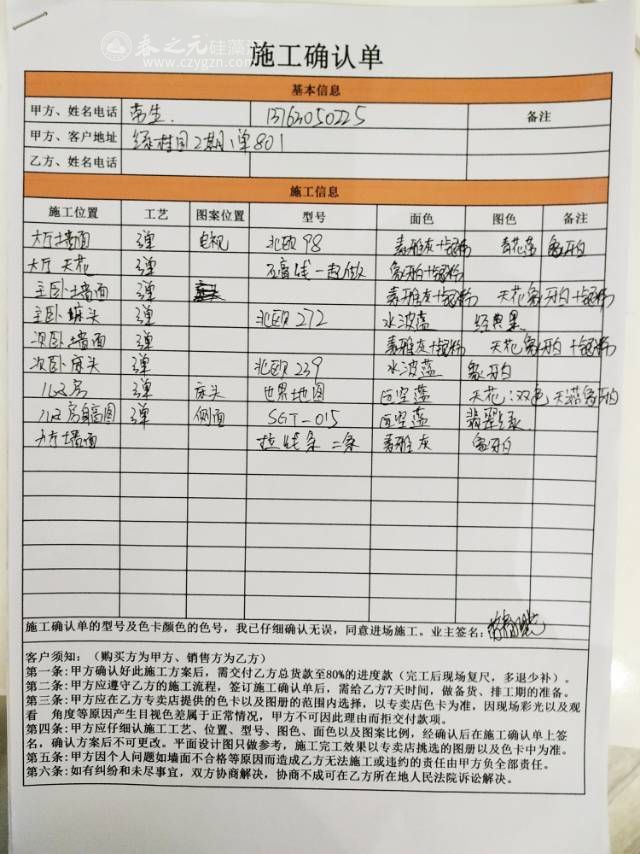 春之元硅藻
www.czygzn.com
施工确认单
基本信息
甲方、姓名电话 13763050225 备注
甲方、客户地址 2期1单801
乙方、姓名电话
施工信息
施工位置 工艺 图案位置 型号 面色 图色 备注
大厅墙面 3弹 电视 北欧98 素雅灰+银粉 青花蓝 象牙白
大厅天花 3弹 石膏线一起做 象牙白+银粉
主卧墙面 3弹 素雅灰+银粉 天花象牙白+银粉
主卧床头 3弹 北欧272 水波蓝 经典黑
次卧墙面 3弹 素雅灰+银粉 天花象牙白+银粉
次卧床头 3弹 北欧239 水波蓝 象牙白
儿童房 3弹 床头 世界地图 天空蓝 天花:双色 天蓝象牙白
儿童房 3弹 侧面 SGT-015 天空蓝 翡翠绿
外厅墙面 拉线条 二条 素雅灰 象牙白
施工确认单的型号及色卡颜色的色号，我已仔细确认无误，同意进场施工。业主签名:
客户须知:（购买方为甲方、销售方为乙方）
第一条:甲方确认好此施工方案后，需交付乙方总货款至80%的进度款（完工后现场复尺，多退少补）。
第二条:甲方应遵守乙方的施工流程，签订施工确认单后，需给乙方7天时间，做备货、排工期的准备。
第三条:甲方应在乙方专卖店提供的色卡以及图册的范围内选择，以专卖店色卡为准，因现场彩光以及观
看 角度等原因产生目视色差属于正常情况，甲方不可因此理由而拒交付款项。
第四条:甲方应仔细确认施工工艺、位置、型号、图色、面色以及图案比例，经确认后在施工确认单上签
名，确认方案后不可更改。平面设计图只做参考，施工完工效果以专卖店挑选的图册以及色卡中为准。
第五条:甲方因个人问题如墙面不合格等原因而造成乙方无法施工或违约的责任由甲方负全部责任。
第六条:如有纠纷和未尽事宜，双方协商解决，协商不成可在乙方所在地人民法院诉讼解决。